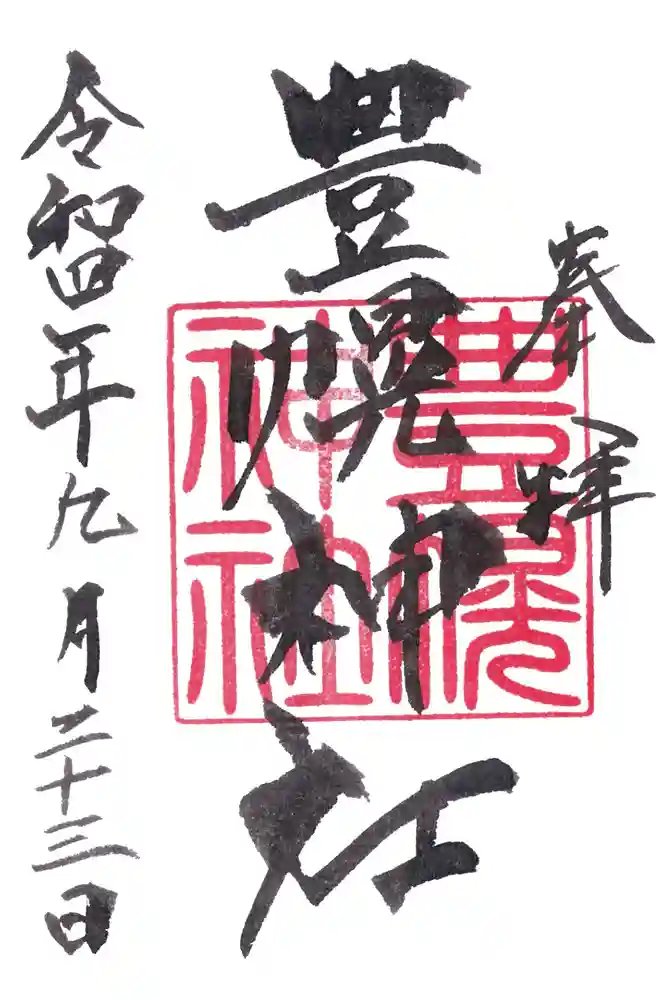 奉拝
豊幌神社
豊幌神社
令和四年九月二十三日